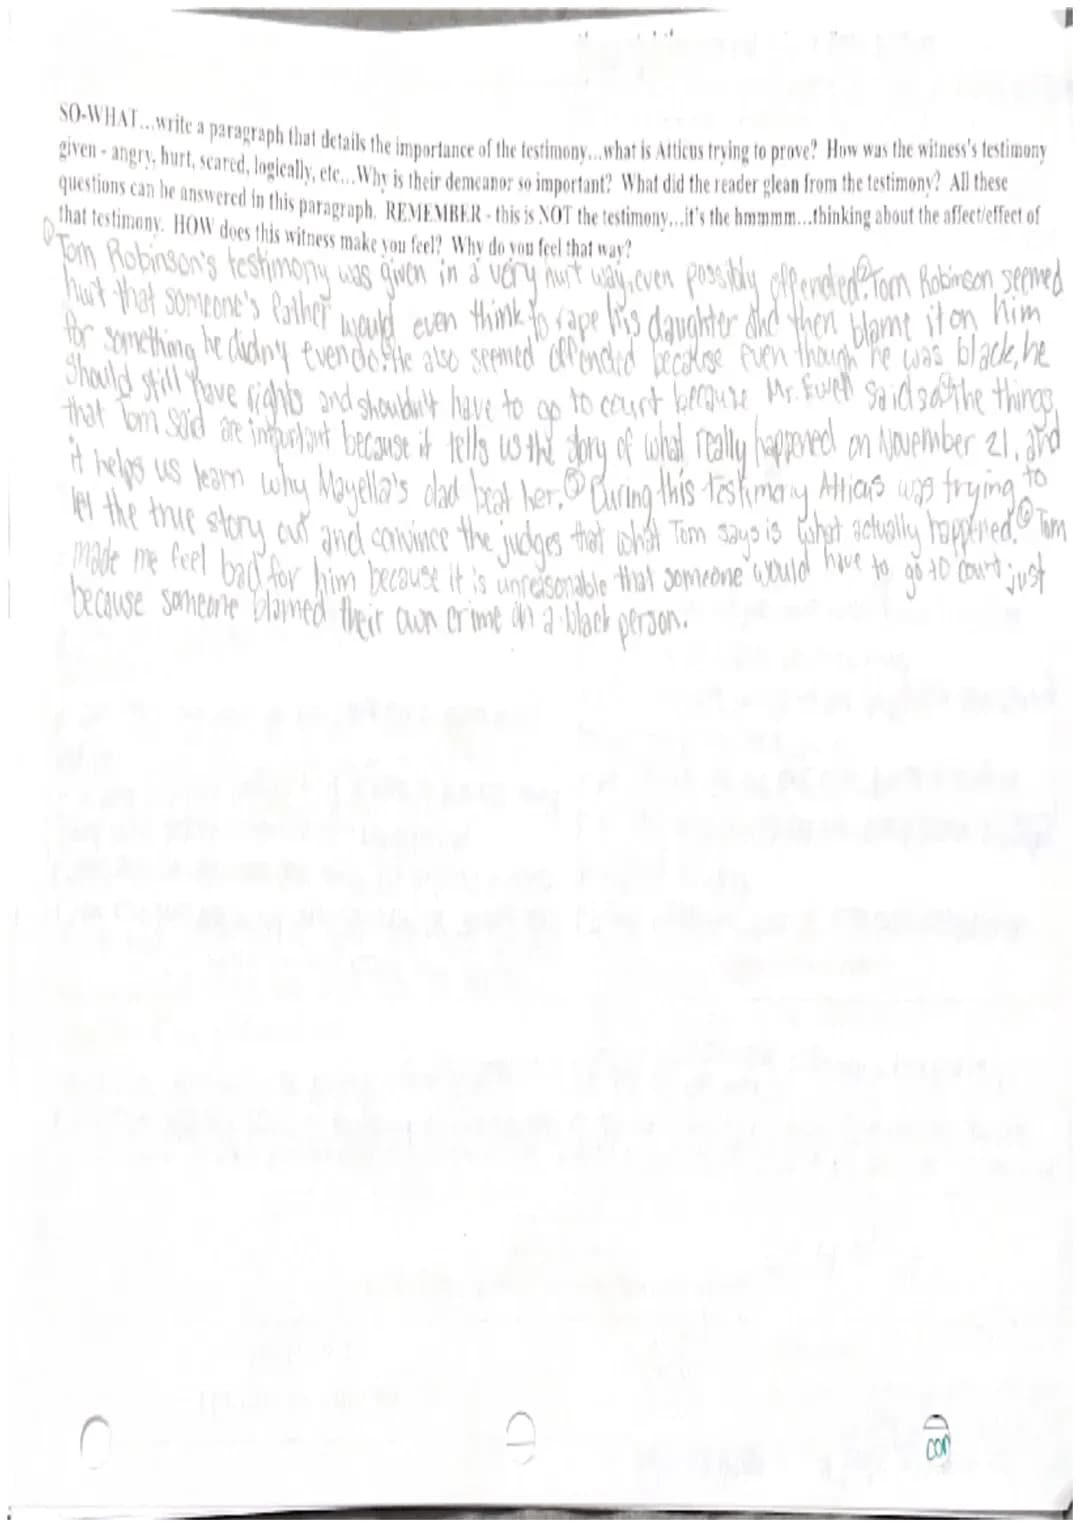 SO-WHAT...write a paragraph that details the importance of the testimony...what is Atticus trying to prove? How was the witness's testimony
given - angry, hurt, scared, logically, etc...Why is their demeanor so important? What did the reader glean from the testimony? All these
questions can be answered in this paragraph. REMEMBER - this is NOT the testimony...it's the hmmmm...thinking about the affect/effect of
that testimony. HOW does this witness make you feel? Why do you feel that way?
① Tom Robinson's testimony was given in a very hurt way, even possibly offended. ② Tom Robinson seemed
hurt that someone's father would even think to rape his daughter and then blame it on him
for something he didn't even do. ③ He also seemed offended because even though he was black, he
should still have rights and shouldn't have to go to court because Mr. Ewell said so. ④ The things
that Tom said are important because it tells us the story of what really happened on November 21, and
it helps us learn why Mayella's dad beat her. ⑤ During this testimony Atticus was trying to
let the true story out and convince the judges that what Tom says is what actually happened. ⑥ Tom
made me feel bad for him because it is unreasonable that someone would have to go to court just
because someone blamed their own crime on a black person.
con